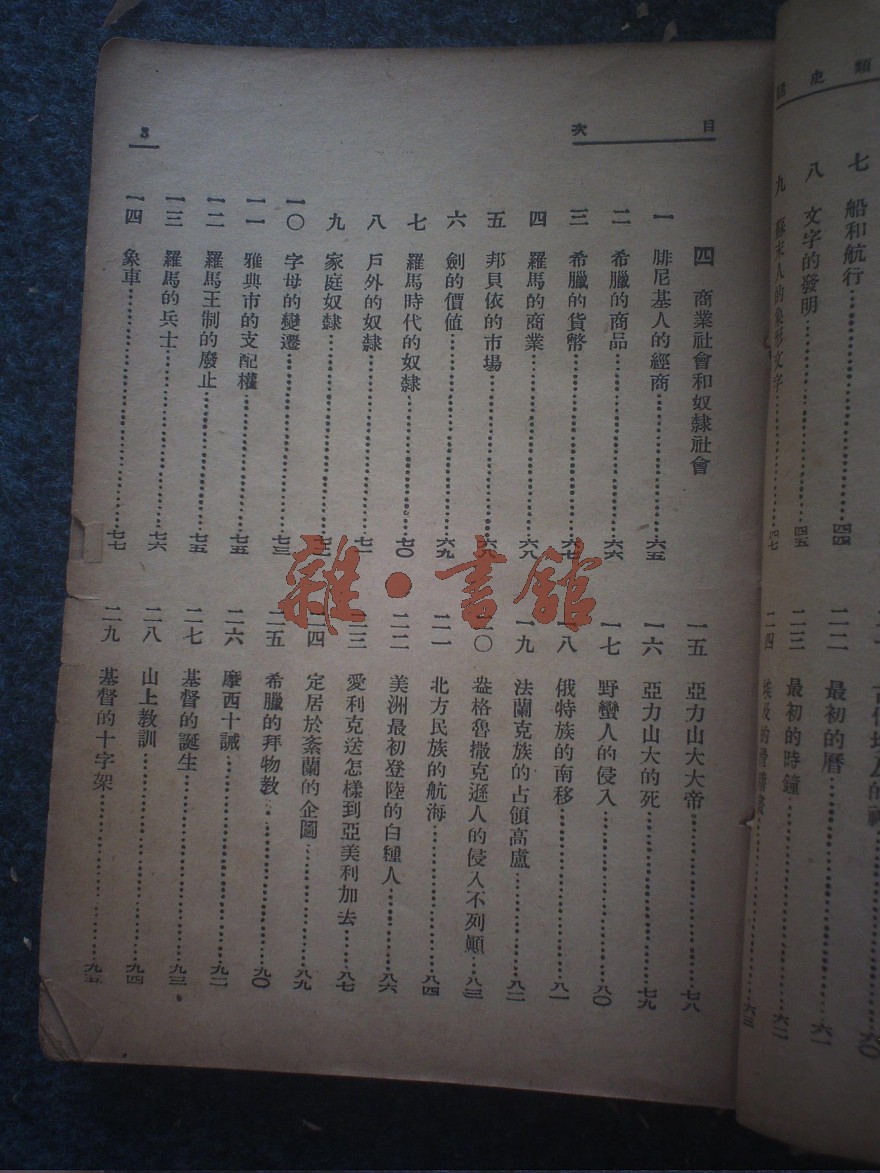 類史話
七 船和航行……四四
八 文字的發明……四五
九 蘇末人的象形文字……四七
二二 最初的曆……六一
二三 最初的時鐘……六二
二四 埃及的……六三
目次
3
四 商業社會和奴隸社會
一 腓尼基人的經商……六五
二 希臘的商品……六六
三 希臘的貨幣……六七
四 羅馬的商業……六八
五 邦貝依的市場……六八
六 劍的價值……六九
七 羅馬時代的奴隸……七〇
八 戶外的奴隸……七一
九 家庭奴隸……七二
一〇 字母的變遷……七三
一一 雅典市的支配權……七五
一二 羅馬王制的廢止……七五
一三 羅馬的兵士……七六
一四 象車……七七
一五 亞力山大大帝……七八
一六 亞力山大的死……七九
一七 野蠻人的侵入……八〇
一八 俄特族的南移……八一
一九 法蘭克族的占領高盧……八二
二〇 盎格魯撒克遜人的侵入不列顛……八三
二一 北方民族的航海……八四
二二 美洲最初登陸的白種人……八六
二三 愛利克送怎樣到亞美利加去……八七
二四 定居於紊蘭的企圖……八九
二五 希臘的拜物教……九〇
二六 摩西十誡……九二
二七 基督的誕生……九三
二八 山上教訓……九四
二九 基督的十字架……九五
雜·書館